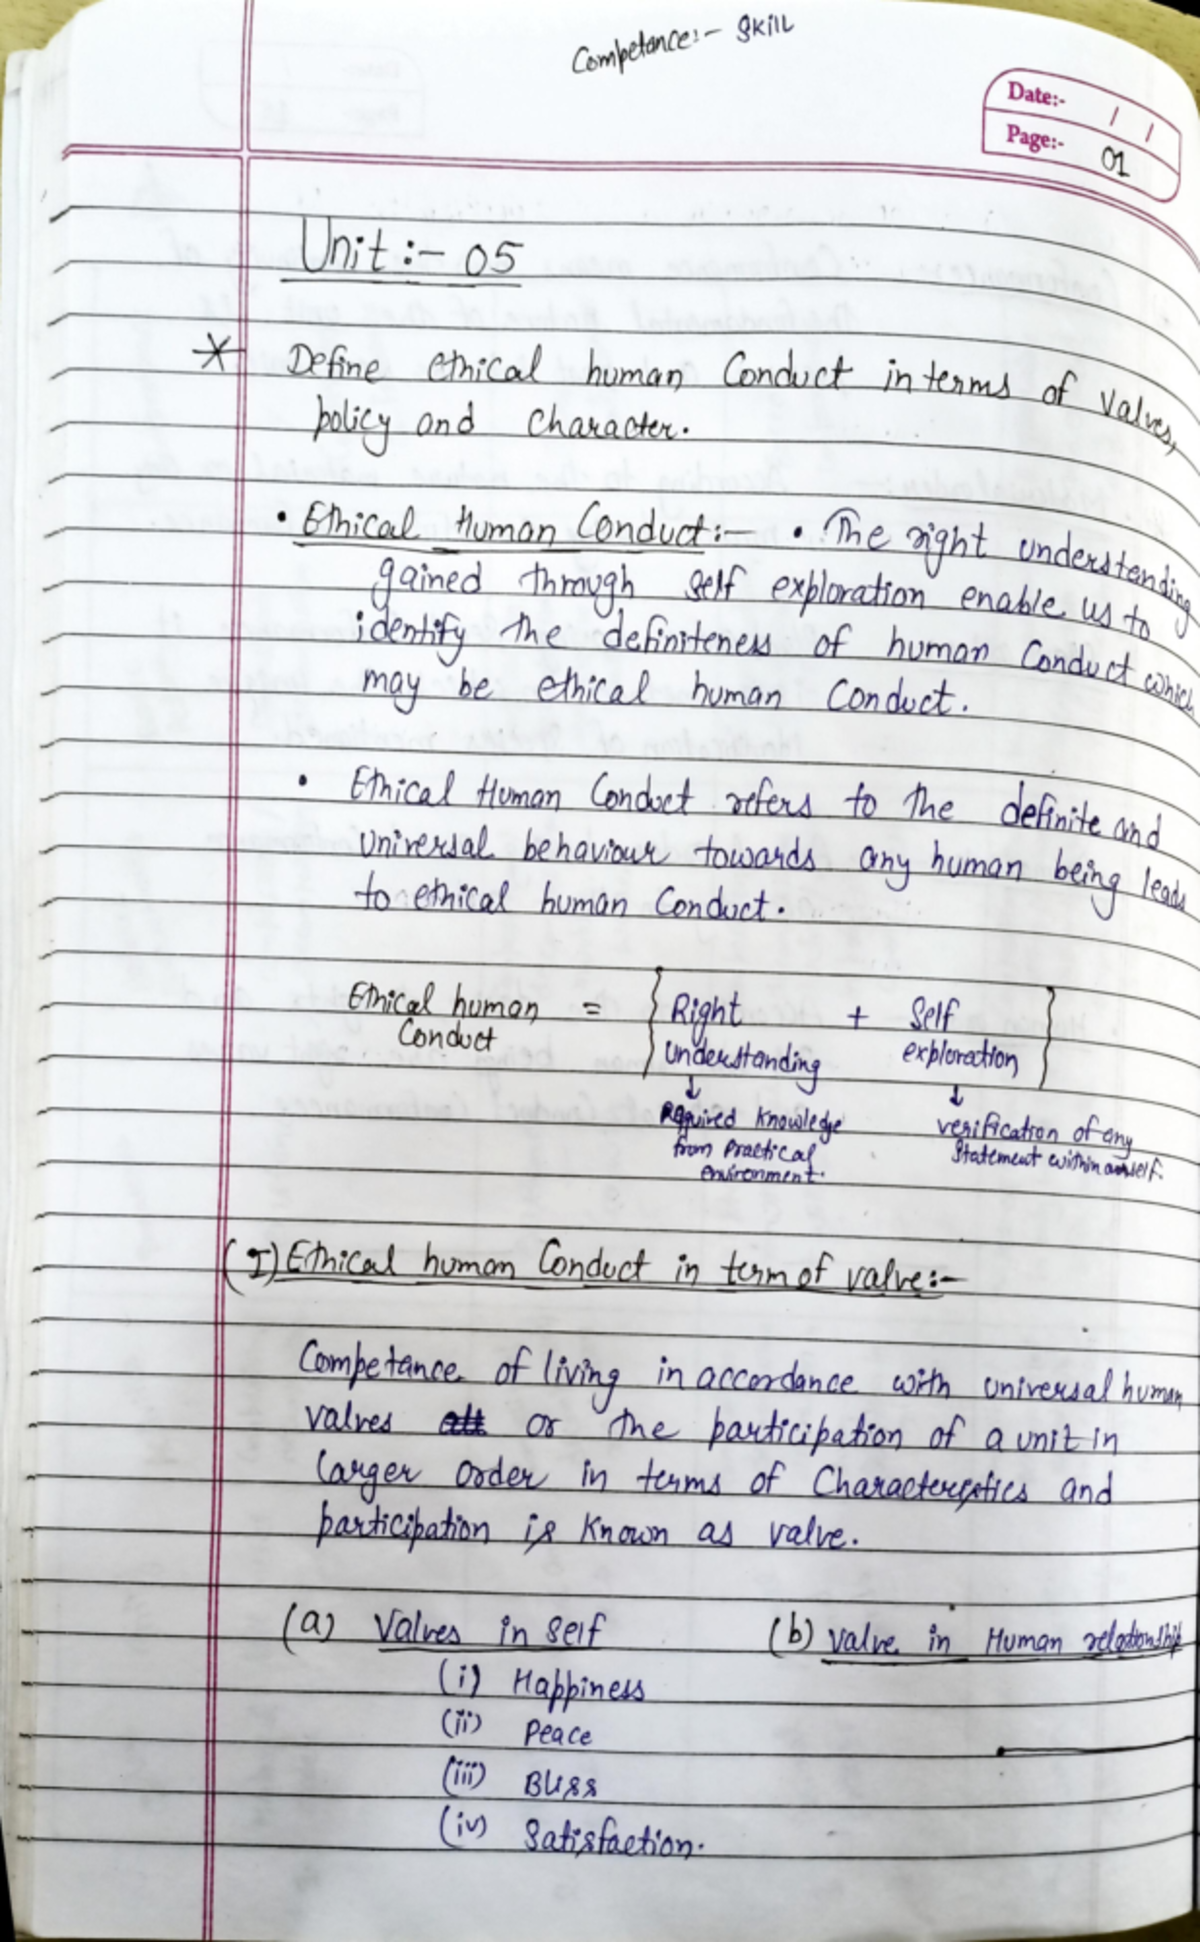 Competance:- Skill
Date:- / /
Page:- 01
Unit:- 05
* Define ethical human Conduct in terms of valves,
policy and character.
• Ethical Human Conduct:- • The right understanding
gained through self exploration enable us to
identify the definiteness of human Conduct which
may be ethical human Conduct.
• Ethical Human Conduct refers to the definite and
universal behaviour towards any human being leads
to ethical human Conduct.
Ethical human = { Right + Self }
Conduct understanding exploration
↓ ↓
Required Knowledge verification of any
from Practical Statement within
environment. self.
(I) Ethical human Conduct in term of valve:-
Competance of living in accordance with universal human
valves or the participation of a unit in
larger order in terms of Characterstics and
participation is known as valve.
(a) Valves in self (b) valve in Human relationship
(i) Happiness
(ii) Peace
(iii) Bliss
(iv) Satisfaction.